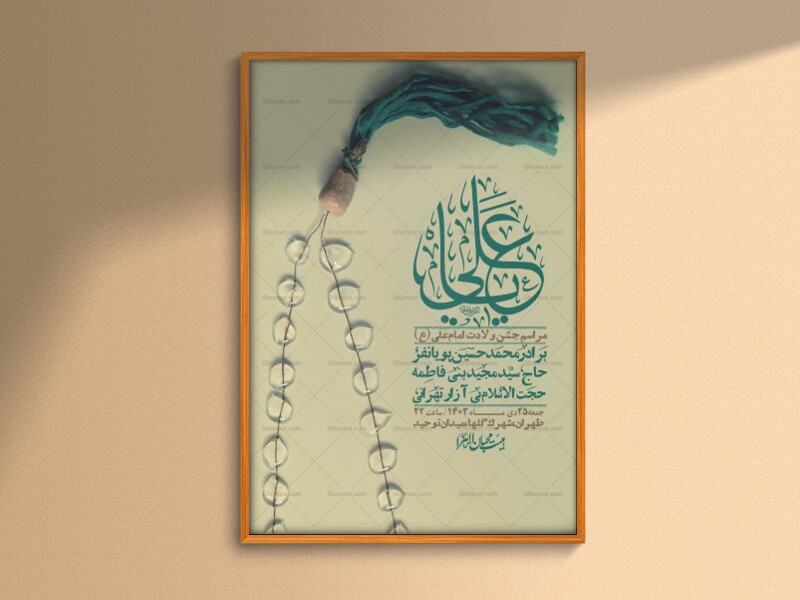 یا علی
مراسم جشن ولادت امام علی (ع)
برادر محمد حسین پویانفر
حاج سید مجید بنی فاطمه
حجت الاسلام بی آزار تهرانی
جمعه ۲۵ دی مـاه ۱۴۰۳ / ساعت ۲۲
طهران، شهرک گلها، میدان توحید
Ghonoot.com